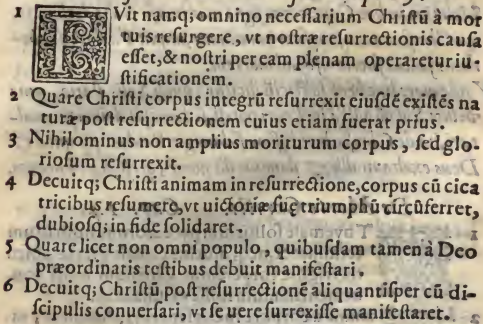 1 FVit namq; omnino neceſſarium Chriſtū à mor
tuis reſurgere, vt noſtræ reſurrectionis cauſa
eſſet, & noſtri per eam plenam operaretur iu-
ſtificationem.
2 Quare Chriſti corpus integrū reſurrexit eiuſdē exiſtēs na
turæ poſt reſurrectionem cuius etiam fuerat prius.
3 Nihilominus non amplius moriturum corpus, ſed glo-
rioſum reſurrexit.
4 Decuitq; Chriſti animam in reſurrectione, corpus cū cica
tricibus reſumere, vt uictoriæ ſuę triumphū circūferret,
dubioſq; in fide ſolidaret.
5 Quare licet non omni populo, quibuſdam tamen à Deo
præordinatis teſtibus debuit manifeſtari.
6 Decuitq; Chriſtū poſt reſurrectionē aliquantiſper cū di-
ſcipulis conuerſari, vt ſe uere ſurrexiſſe manifeſtaret.